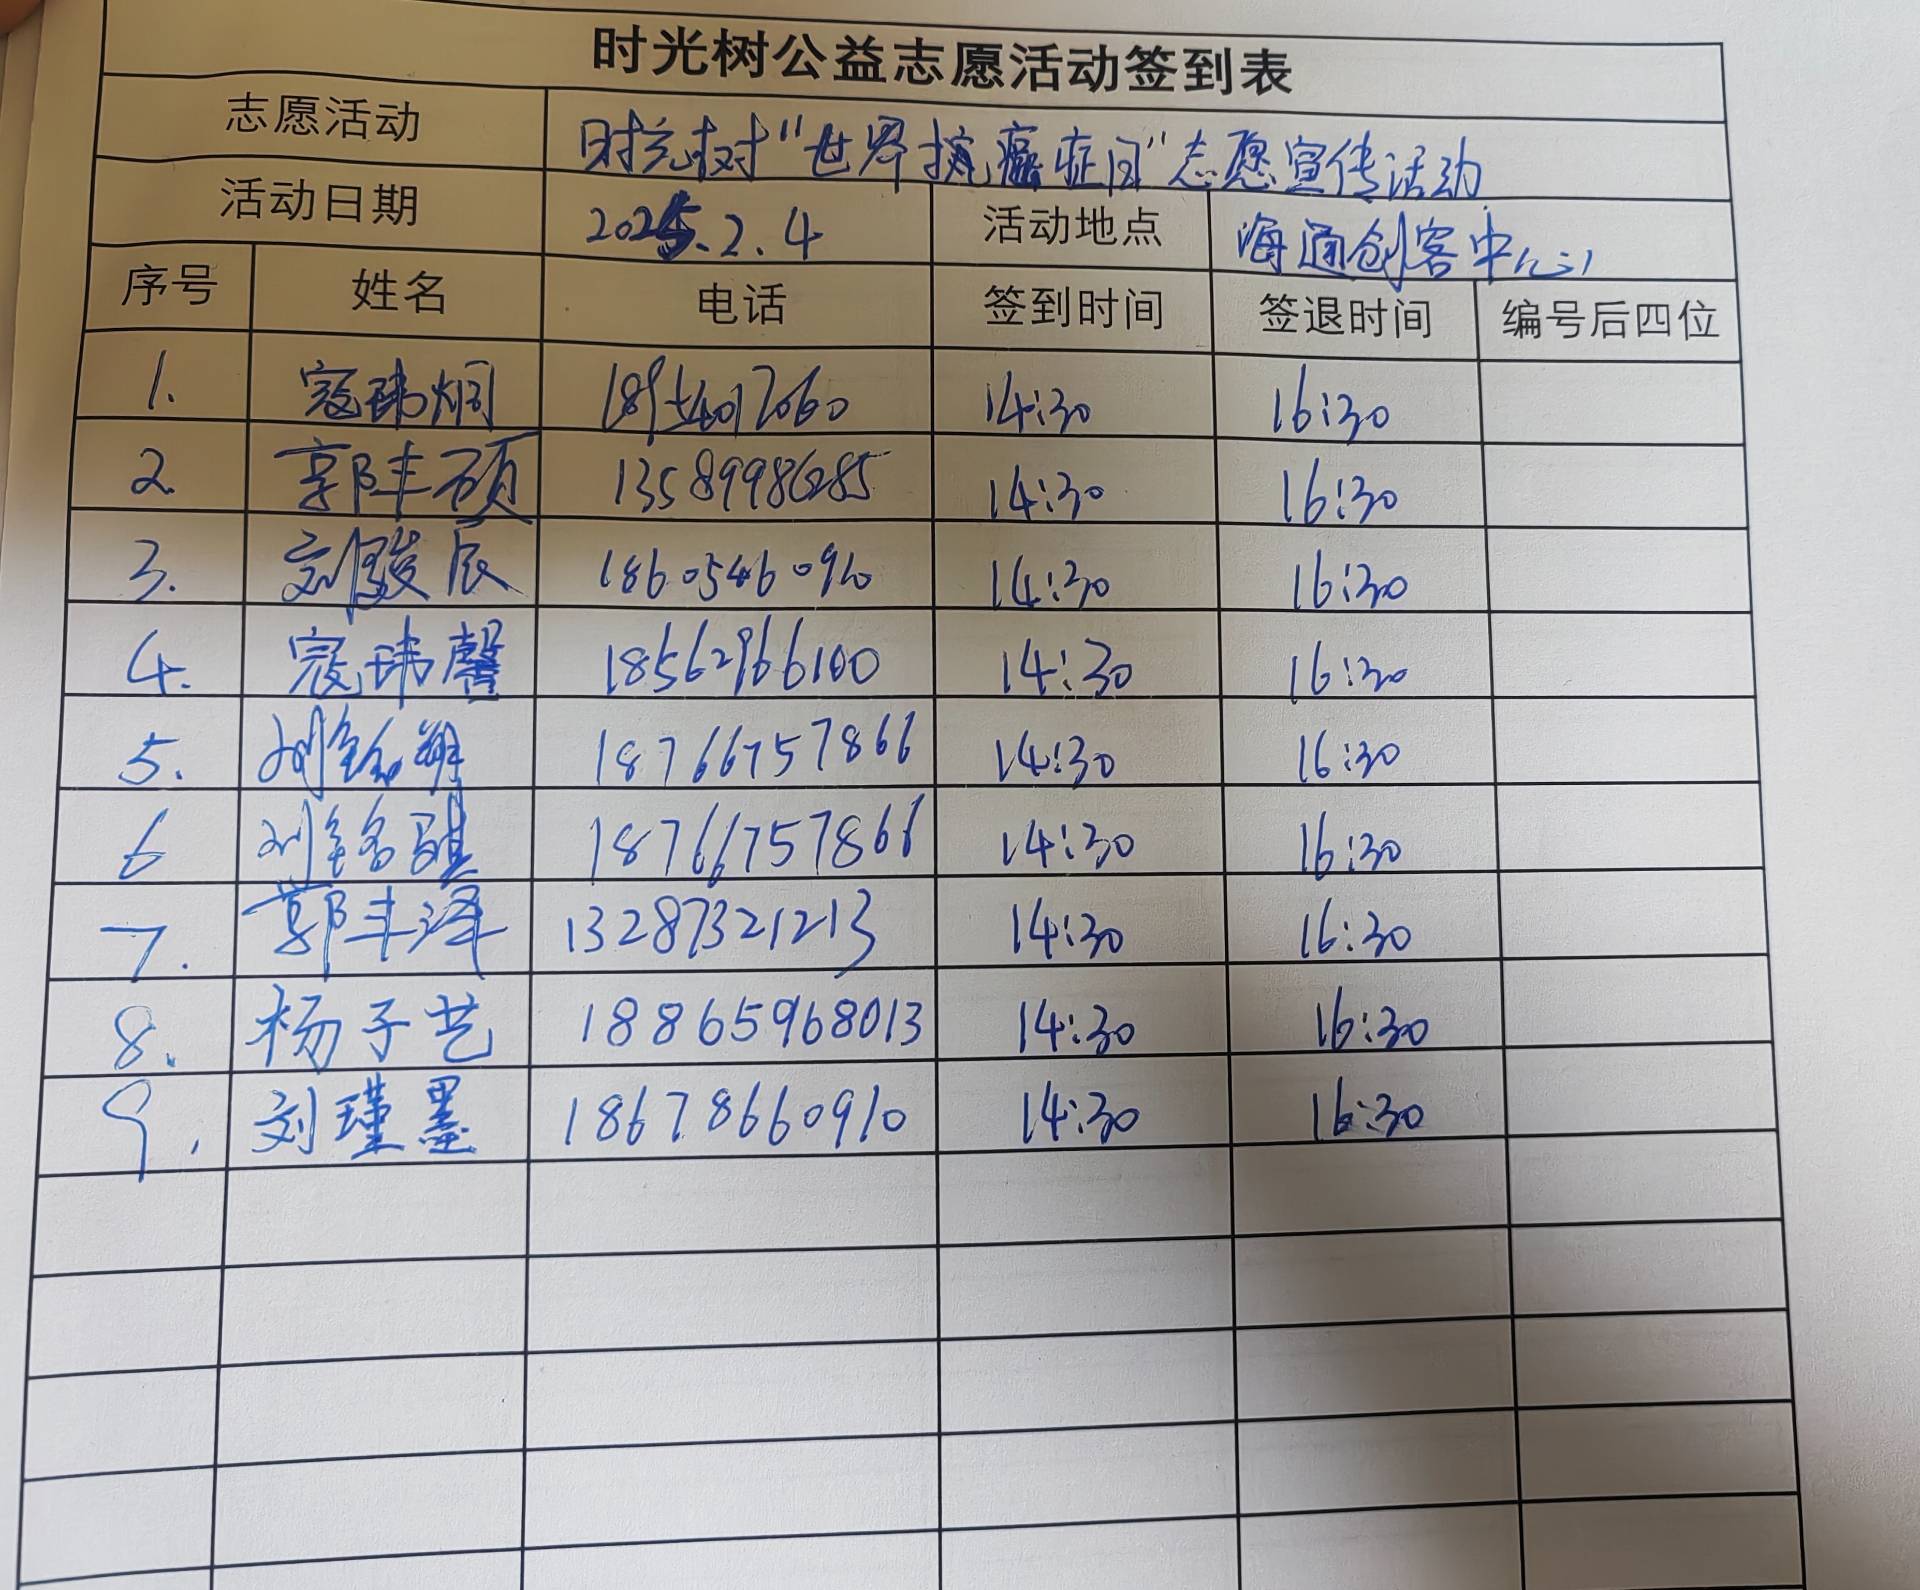 时光树公益志愿活动签到表
志愿活动 时光树"世界抗癌症日"志愿宣传活动
活动日期 2025.2.4 活动地点 海通创客中心
序号 姓名 电话 签到时间 签退时间 编号后四位
1. 寇玮炯 14:30 16:30
2. 郭丰硕 13589986285 14:30 16:30
3. 刘骏辰 18605460910 14:30 16:30
4. 寇玮馨 18562966100 14:30 16:30
5. 刘铭朔 18766757866 14:30 16:30
6 刘铭骐 18766757866 14:30 16:30
7. 郭丰泽 13287321213 14:30 16:30
8. 杨子艺 18865968013 14:30 16:30
9. 刘瑾墨 18678660910 14:30 16:30